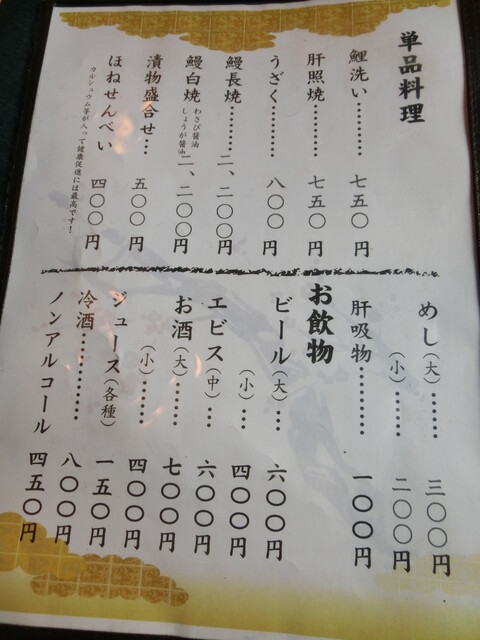 単品料理
鯉洗い………七五〇円
肝照焼………七五〇円
うざく………八〇〇円
鰻長焼………二、二〇〇円
鰻白焼 わさび醤油 しょうが醤油 二、二〇〇円
漬物盛合せ…五〇〇円
ほねせんべい 四〇〇円
カルシュウム等が入って健康促進には最高です！
めし（大）……三〇〇円
（小）……二〇〇円
肝吸物………一〇〇円
お飲物
ビール（大）…六〇〇円
（小）…四〇〇円
エビス（中）…六〇〇円
お酒（大）……七〇〇円
（小）……四〇〇円
ジュース（各種）一五〇円
冷酒…………八〇〇円
ノンアルコール 四五〇円